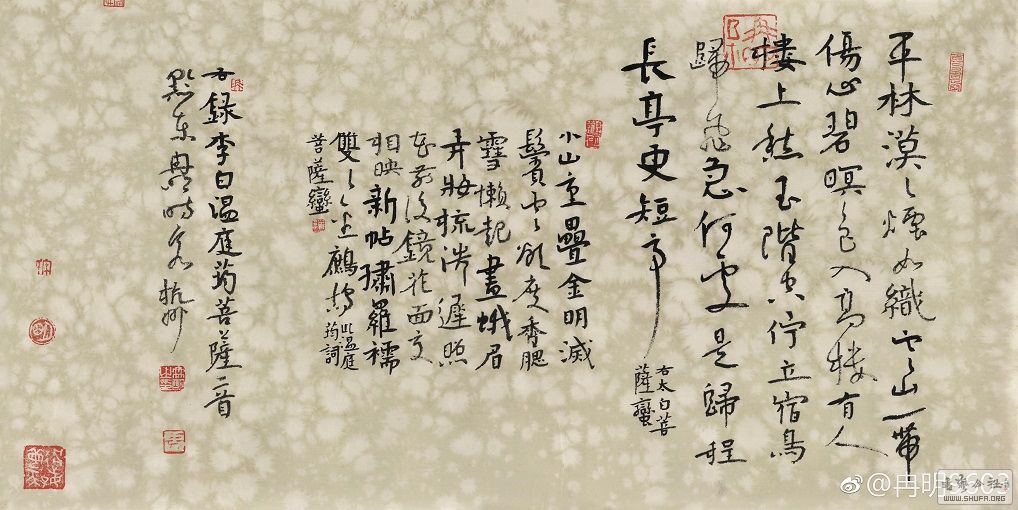 平林漠〻煙如織寒山一帶
傷心碧暝色入高樓有人
樓上愁玉階空佇立宿鳥
歸飛急何處是歸程
長亭更短亭
右太白菩
薩蠻
小山重疊金明滅
鬢雲欲度香腮
雪懶起畫蛾眉
弄妝梳洗遲照
花前後鏡花面交
相映新帖繡羅襦
雙〻金鷓鴣
此溫庭
筠詞
菩薩蠻
右錄李白溫庭筠菩薩二首
時客杭州
WWW.SHUFA.ORG